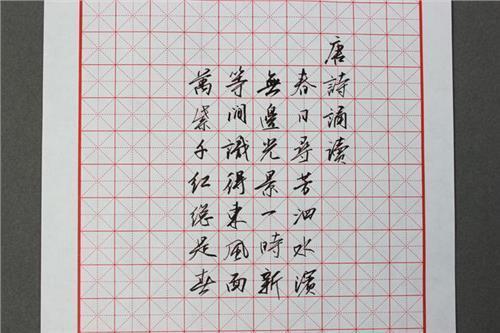 唐詩誦读
春日尋芳泗水濱
無邊光景一時新
等间識得東風面
萬紫千红總是春